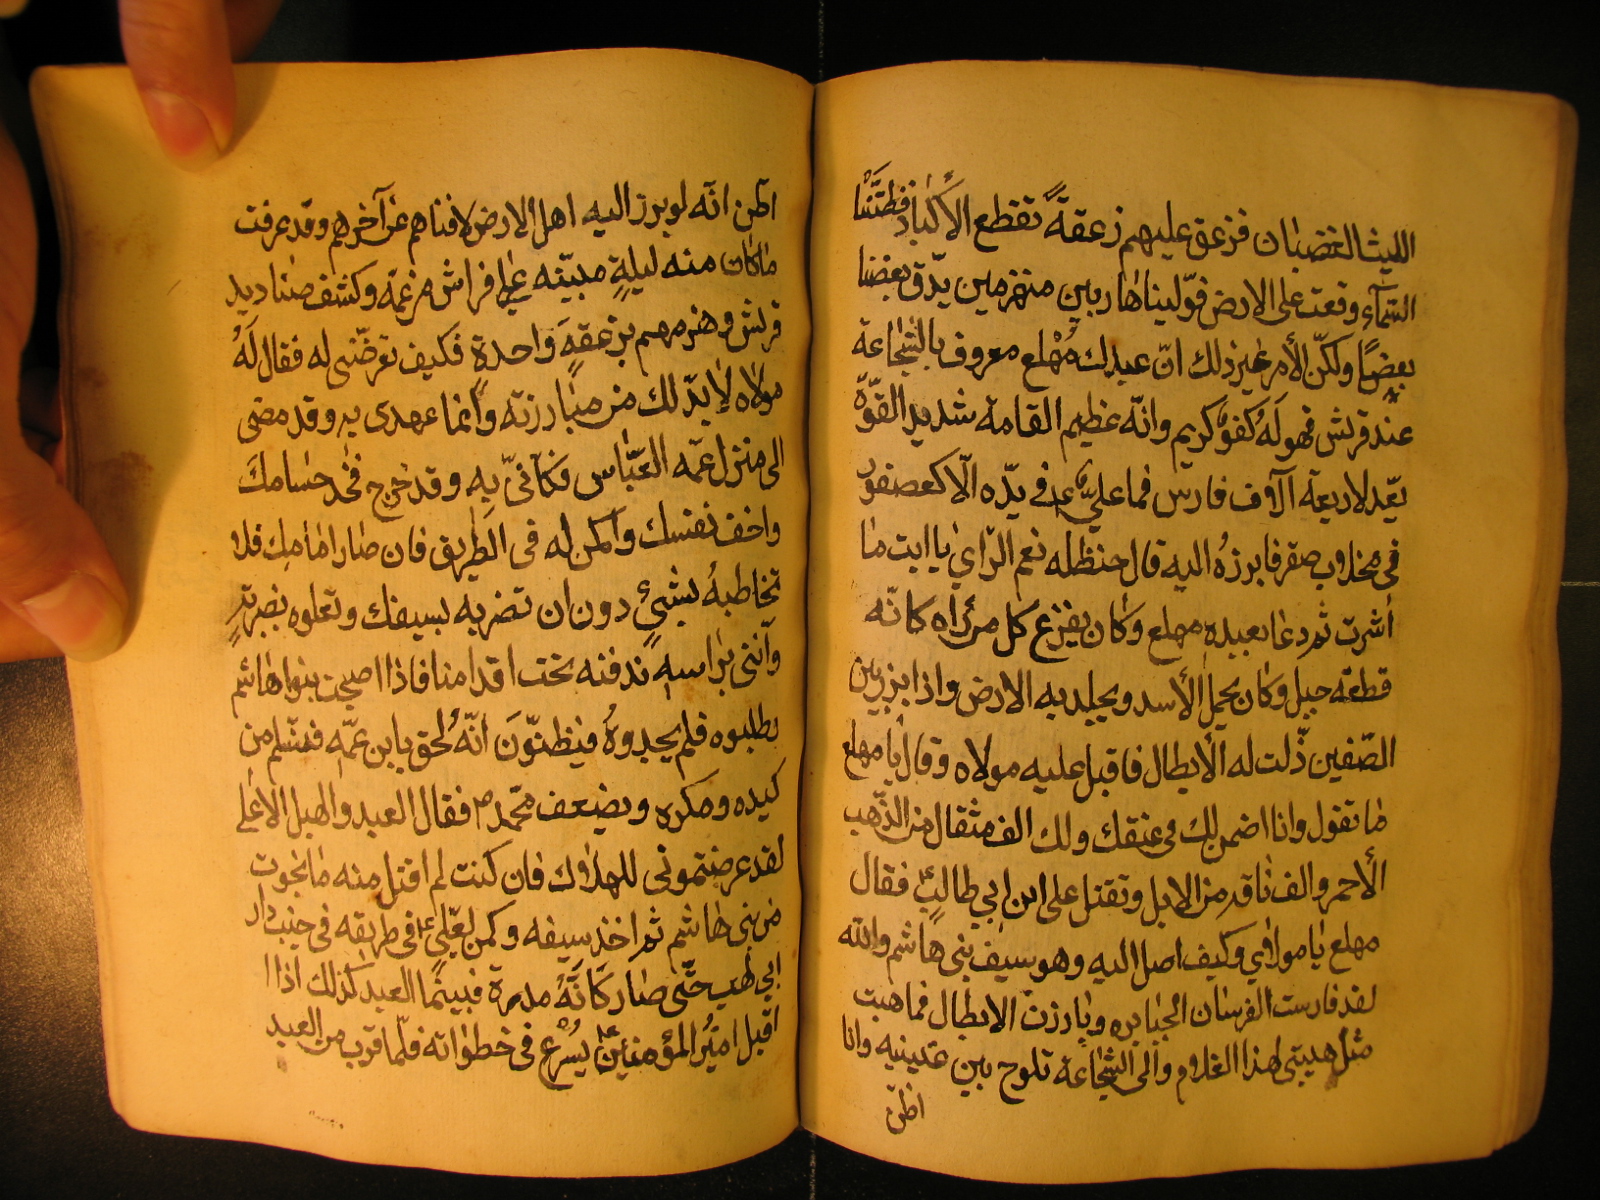 الليث الغضبان فزعق عليهم زعقةً تقطع الأكباد فظنّنا
السّماء وقعت على الارض فولّينا هاربين منهزمين يدّق بعضنا
بعضًا ولكنّ الأمر غير ذلك انّ عبدك مُهْلع معروف بالشّجاعة
عند قريش فهو لَهُ كفوٌ كريم وانّه عظيم القامة شديد القوّة
يعّد لاربعة آلاف فارس فما عليٌّ ع في يدّه الّا كعصفور
في مخلاب صقر فابرزهُ اليه قال حنظله نعم الرّاي يا ابت ما
أشرت ثم دعا بعبيده مهلع وكان يفزع كل من رٰاه كانّه
قطعة جبل وكان يحمل الأسد ويجلد به الارض واذا برز بين
الصّفين ذّلت له الأبطال فاقبل عليه مولاه وقال يا مهلع
ما تقول وانا اضمن لك في عنقك ولك الف مثقال من الذّهب
الأحمر والف ناقه من الابل وتقتل على ابن ابي طالبٍ فقال
مهلع يا مولاي وكيف اصل اليه وهو سيف بني هاشم والله
لقد فارست الفرسان الجبابره وبارزت الابطال فما هبت
مثل هيبتي هذا الغلام وأنّى الشّجاعة تلوح بين عينيه وانا
اظنّ
اظنّ انّه لو برز اليه اهل الارض لافناهم عن آخرهم وقد عرفت
ما كان منه ليلةٍ مبيّته على فراش عمّه وكشف صناديد
قريش وهزمهم بزعقةٍ واحدة فكيف تعرضّني له فقال لَهُ
مولاه لا بدّ لك من مبارزته وانّما عهدي به وقد مضى
الى منزل عمّه العبّاس فكأنّي بِه وقد خرج فخُذ حسامك
واخف نفسك واكمن له في الطريق فان صار امامك فلا
تخاطبهُ بشيئٍ دون ان تضربه بسيفك وتعلوه بضربةٍ
وآتني براسهِ ندفنه تحت اقدامنا فاذا اصبحت بنوا هاشم
يطلبوه فلم يجدوهُ فيظنّونَ انّهُ لحق بابن عمّه فنسّلم من
كيده ومكره ويضعف محمد ص فقال العبد والهبل الاعلى
لقد عرضتموني للهلاك فان كنت لم اقتل منه ما نجوت
من بني هاشم ثم اخذ سيفه وكمن لعّلي ع في طريقه في جنب دار
ابي لهب حتّى صار كانَّهُ مدرة فبينما العبد كذلك اذا
اقبل اميرُ المؤمنين ع يُسْرع في خطواته فلّما قرب من العبد